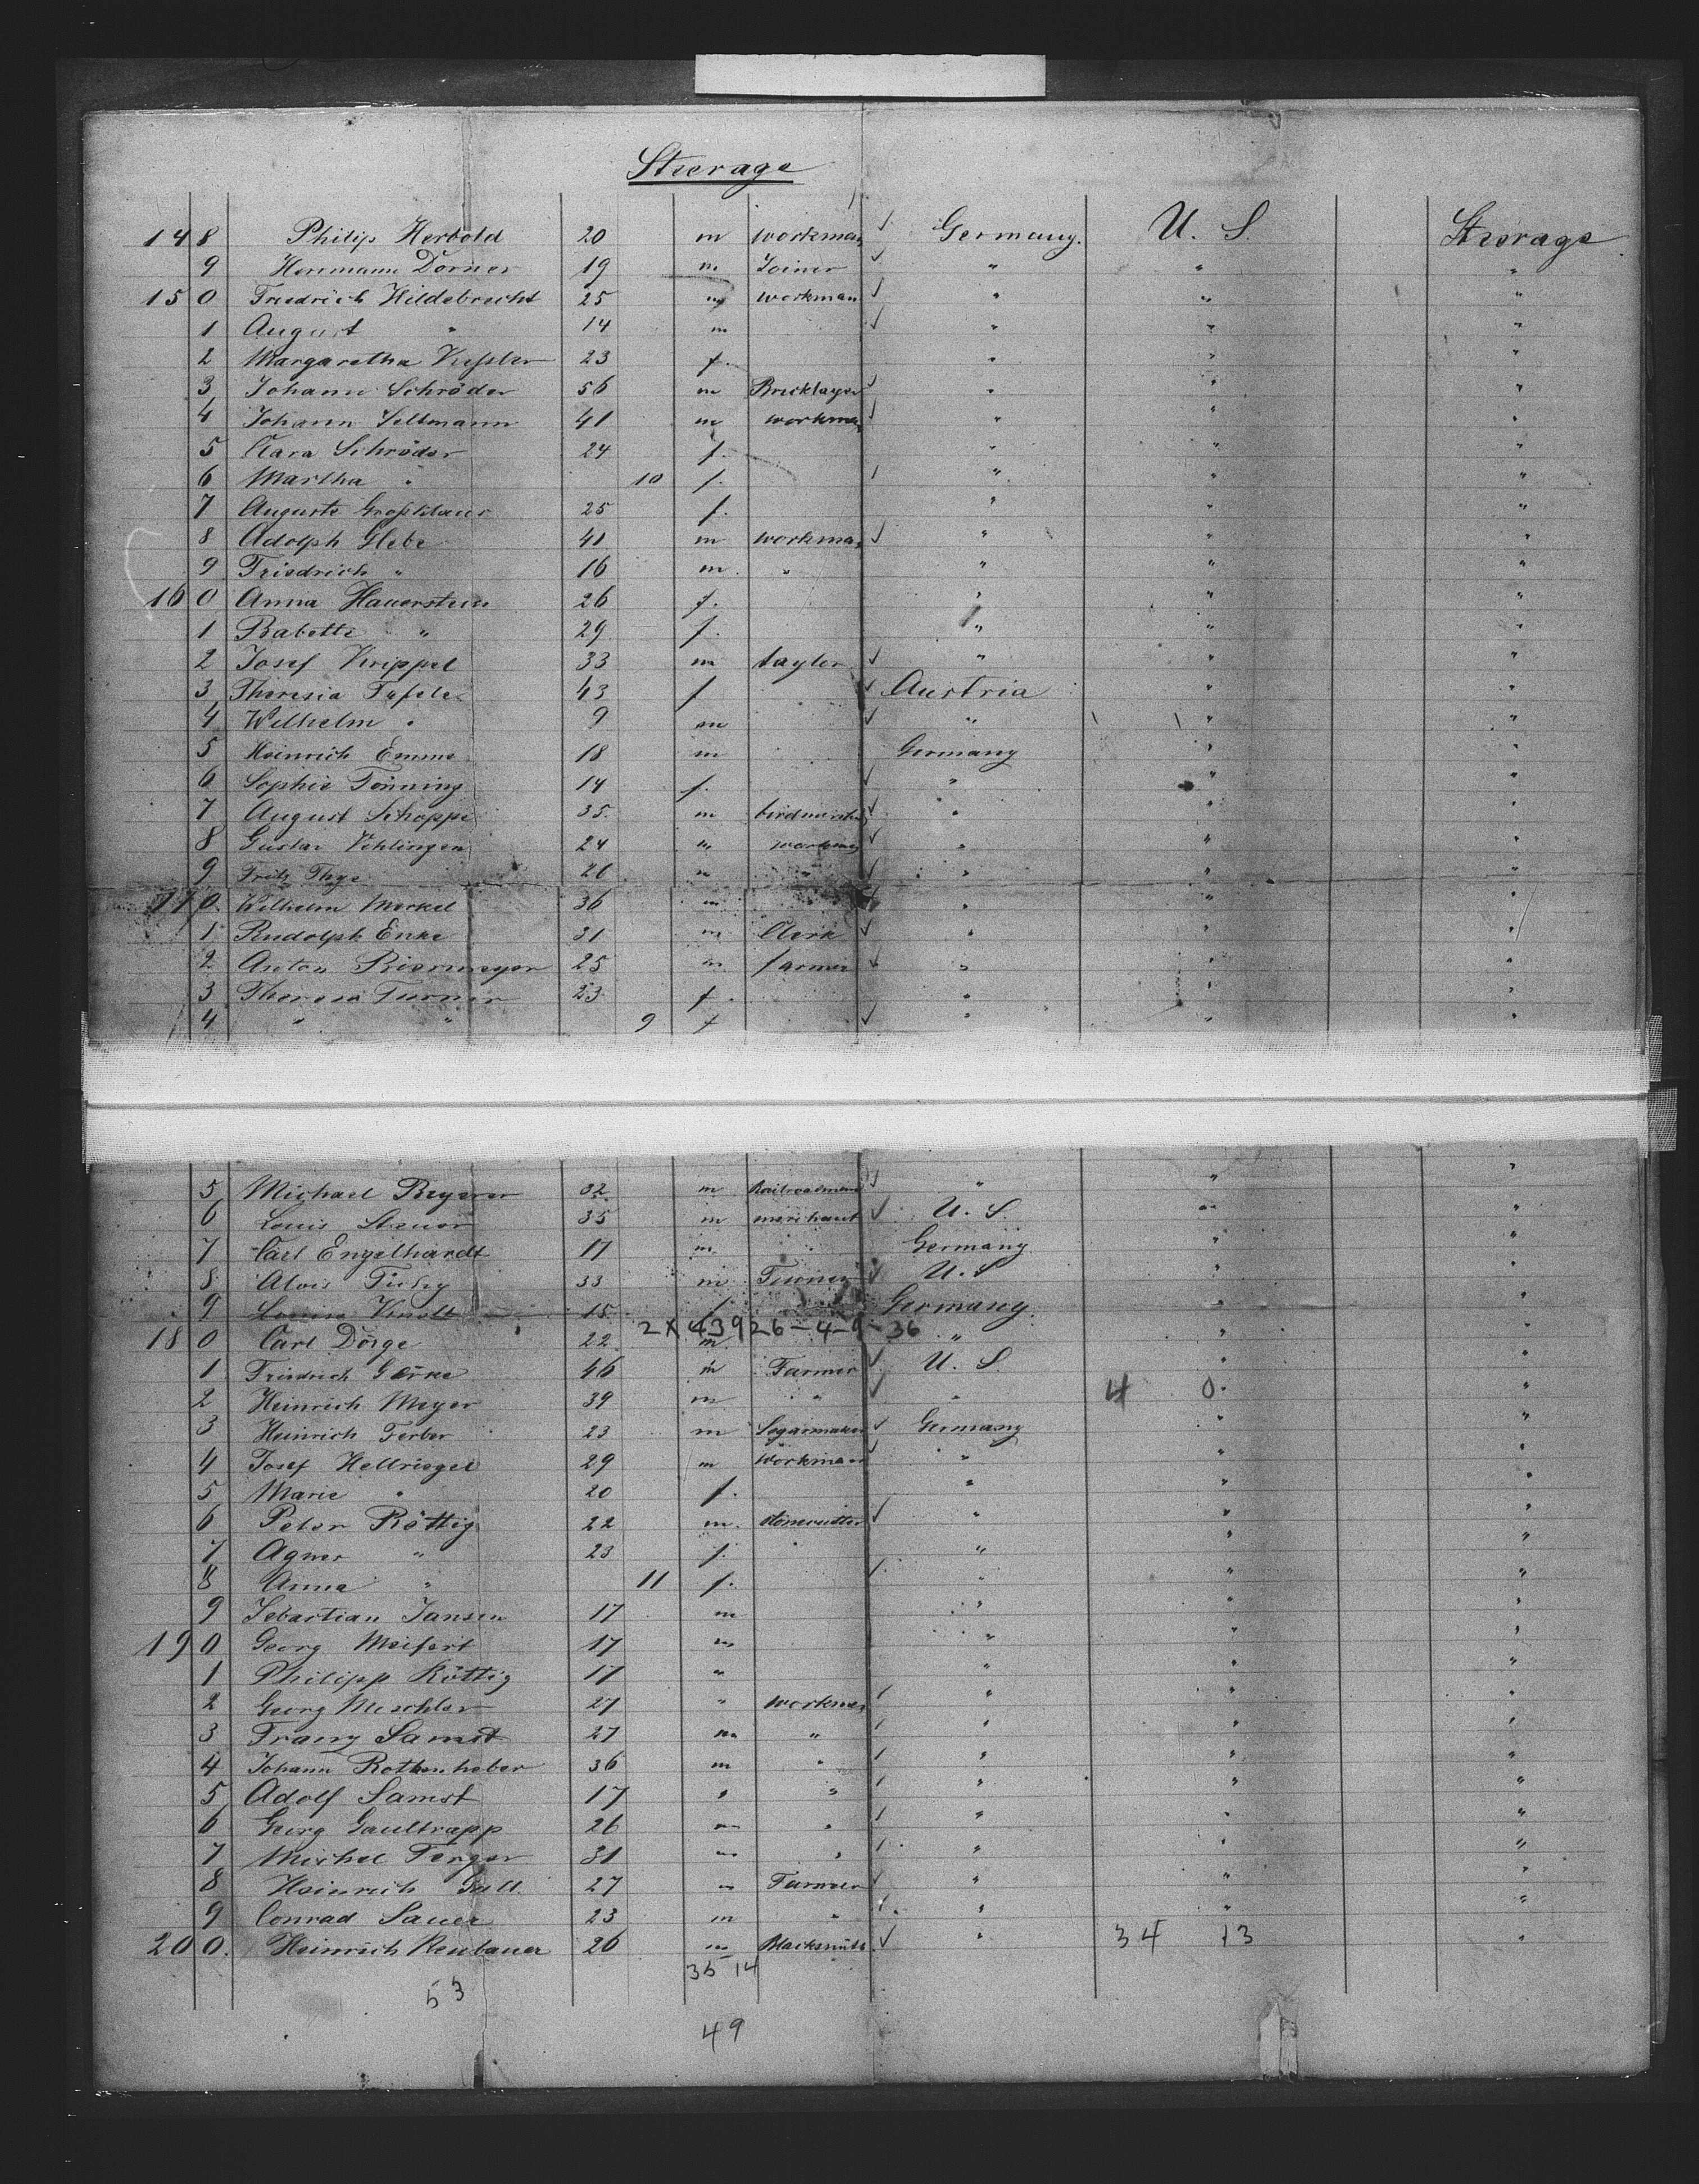 Steerage
148 Philip Herbold 20 m workman ✓ Germany. U. S. Steerage
9 Hermann Dorner 19 m Joiner ✓ " " "
150 Friedrich Hildebrecht 25 m workman ✓ " " "
1 August " 14 m ✓ " " "
2 Margaretha Kessler 23 f. " " "
3 Johann Schröder 56 m Bricklayer ✓ " " "
4 Johann Seltmann 41 m workman ✓ " " "
5 Clara Schröder 24 f. " " "
6 Martha " 10 f. " " "
7 Auguste 25 f. " " "
8 Adolph Glebe 41 m workman ✓ " " "
9 Friedrich " 16 m. " " " "
160 Anna Hauerstein 26 f. " " "
1 Babette " 29 f. " " "
2 Josef Krippel 33 m tayler ✓ " " "
3 Theresia 43 f ✓ Austria " "
4 Wilhelm " 9 m ✓ " " "
5 Heinrich Emme 18 m Germany " "
6 Sophie Tönning 14 f. ✓ " " "
7 August Schoppe 35. m ✓ " " "
8 Gustav Vehlingen 24 m workman ✓ " " "
9 Fritz Thye 26 m " ✓ " " "
170. Wilhelm Merkel 36 m ✓ " " "
1 Rudolph Enke 31 m Clerk ✓ " " "
2 Anton Biermeyer 25 m farmer ✓ " " "
3 Theresa Turner 23 f. " " "
4 " " 9 f ✓ " " "
5 Michael Beyerer 32 m ✓ " " "
6 Louis Steuer 35 m merchant ✓ U. S. " "
7 Carl Engelhardt 17 m Germany " "
8 Alois Tichy 33 m Turner ✓ U. S " "
9 Louise 15 f Germany. " "
2X43926-4-9-36
180 Carl Dörge 22 m. " " "
1 Friedrich Gerke 46 m Farmer ✓ U. S. " "
2 Heinrich Meyer 39 m " ✓ " 4 0 "
3 Heinrich Ferber 23 m Segarmaker ✓ Germany " "
4 Josef Hellriegel 29 m Workman ✓ " " "
5 Marie " 20 f. " " "
6 Peter Röttig 22 m. Stonecutter ✓ " " "
7 Agnes " 23 f. " " "
8 Anna " 11 f. " " "
9 Sebastian Jansen 17 m " " "
190 Georg Meifert 17 m " " "
1 Philipp Röttig 17 " " " "
2 Georg Meschler 27 " workman " " "
3 Franz Samst 27 m " " " "
4 Johann Rothenheber 36 m " " " "
5 Adolf Samst 17 " " " " "
6 Georg Gaultrapp 26 m " " " "
7 Michel Ferger 31 m " " " "
8 Heinrich 27 m Farmer ✓ " " "
9 Conrad Sauer 23 m " " " "
200. Heinrich Neubauer 26 m Blacksmith ✓ " 34 13 "
35 14
53
49